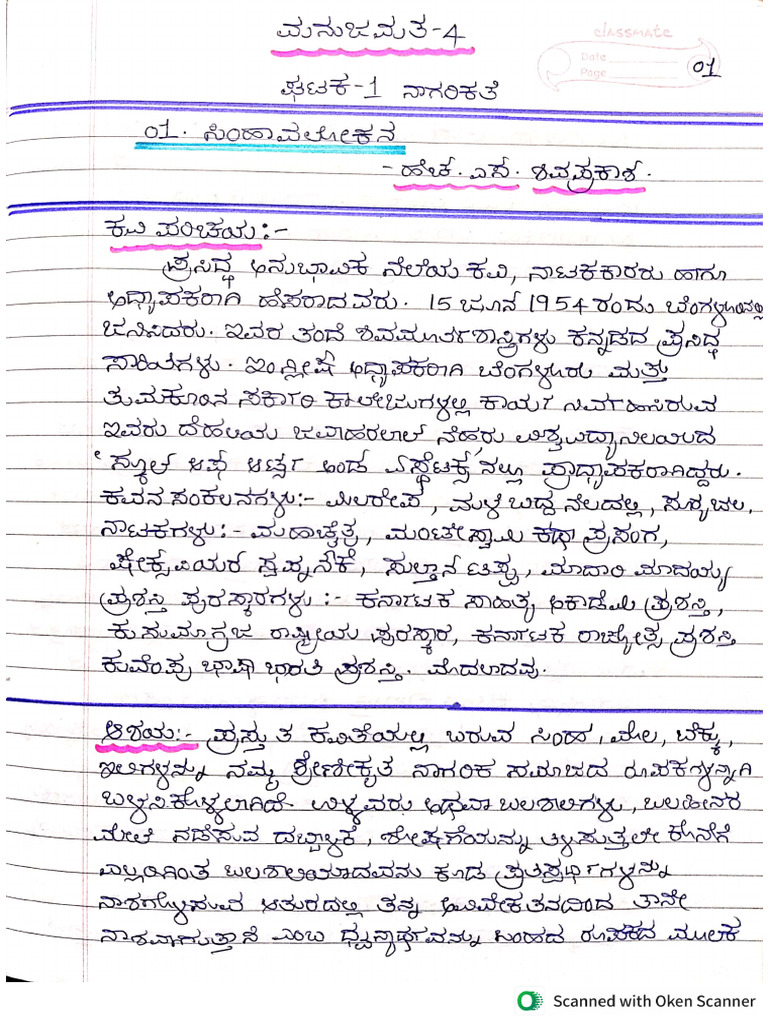 ಮನುಜಮತ-4
classmate
Date
Page
01
ಘಟಕ-1 ನಾಗರಿಕತೆ
01. ಸಿಂಹಾವಲೋಕನ
- ಹೆಚ್. ಎಸ್. ಶಿವಪ್ರಕಾಶ್.
ಕವಿ ಪರಿಚಯ:-
ಪ್ರಸಿದ್ಧ ಅನುಭಾವಿಕ ನೆಲೆಯ ಕವಿ, ನಾಟಕಕಾರರು ಹಾಗೂ
ಅಧ್ಯಾಪಕರಾಗಿ ಹೆಸರಾದವರು. 15 ಜೂನ್ 1954 ರಂದು ಬೆಂಗಳೂರಿನಲ್ಲಿ
ಜನಿಸಿದರು. ಇವರ ತಂದೆ ಶಿವಮೂರ್ತಿಶಾಸ್ತ್ರಿಗಳು ಕನ್ನಡದ ಪ್ರಸಿದ್ಧ
ಸಾಹಿತಿಗಳು. ಇಂಗ್ಲೀಷ್ ಅಧ್ಯಾಪಕರಾಗಿ ಬೆಂಗಳೂರು ಮತ್ತು
ತುಮಕೂರಿನ ಸರ್ಕಾರಿ ಕಾಲೇಜುಗಳಲ್ಲಿ ಕಾರ್ಯ ನಿರ್ವಹಿಸಿರುವ
ಇವರು ದೆಹಲಿಯ ಜವಾಹರಲಾಲ್ ನೆಹರು ವಿಶ್ವವಿದ್ಯಾನಿಲಯದ
'ಸ್ಕೂಲ್ ಆಫ್ ಆರ್ಟ್ಸ್ ಅಂಡ್ ಏಸ್ಥೆಟಿಕ್ಸ್'ನಲ್ಲೂ ಪ್ರಾಧ್ಯಾಪಕರಾಗಿದ್ದರು.
ಕವನ ಸಂಕಲನಗಳು:- ಮಿಲರೇಪ, ಮಳೆ ಬಿದ್ದ ನೆಲದಲ್ಲಿ,
ನಾಟಕಗಳು:- ಮಹಾಚೈತ್ರ, ಮಂಟೇಸ್ವಾಮಿ ಕಥಾ ಪ್ರಸಂಗ,
ಷೇಕ್ಸ್‌ಪಿಯರ ಸ್ವಪ್ನನೌಕೆ, ಸುಲ್ತಾನ ಟಿಪ್ಪು, ಮಾದಾರಿ ಮಾದಯ್ಯ
ಪ್ರಶಸ್ತಿ ಪುರಸ್ಕಾರಗಳು :- ಕರ್ನಾಟಕ ಸಾಹಿತ್ಯ ಅಕಾಡೆಮಿ ಪ್ರಶಸ್ತಿ,
ಕುಸುಮಾಗ್ರಜ ರಾಷ್ಟ್ರೀಯ ಪುರಸ್ಕಾರ, ಕರ್ನಾಟಕ ರಾಜ್ಯೋತ್ಸ ಪ್ರಶಸ್ತಿ
ಕುವೆಂಪು ಭಾಷಾ ಭಾರತಿ ಪ್ರಶಸ್ತಿ. ಮೊದಲಾದವು.
ಆಶಯ:- ಪ್ರಸ್ತುತ ಕವಿತೆಯಲ್ಲಿ ಬರುವ ಸಿಂಹ, ಮೊಲ, ಬೆಕ್ಕು,
ಇಲಿಗಳನ್ನು ನಮ್ಮ ಶ್ರೇಣೀಕೃತ ನಾಗರಿಕ ಸಮಾಜದ ರೂಪಕಗಳನ್ನಾಗಿ
ಬಳಸಿಕೊಳ್ಳಲಾಗಿದೆ. ಉಳ್ಳವರು ಅಥವಾ ಬಲಶಾಲಿಗಳು, ಬಲಹೀನರ
ಮೇಲೆ ನಡೆಸುವ ದಬ್ಬಾಳಿಕೆ, ಶೋಷಣೆಯನ್ನು ತಿಳಿಸುತ್ತಲೇ ಕೊನೆಗೆ
ಎಲ್ಲರಿಗಿಂತ ಬಲಶಾಲಿಯಾದವನು ಕೂಡ ಪ್ರತಿಸ್ಪರ್ಧಿಗಳನ್ನು
ನಾಶಗೊಳಿಸುವ ಆತುರದಲ್ಲಿ ತನ್ನ ಅವಿವೇಕತನದಿಂದ ತಾನೇ
ನಾಶವಾಗುತ್ತಾನೆ ಎಂಬ ಧ್ವನ್ಯಾರ್ಥವನ್ನು ಸಿಂಹದ ರೂಪಕದ ಮೂಲಕ
Scanned with Oken Scanner